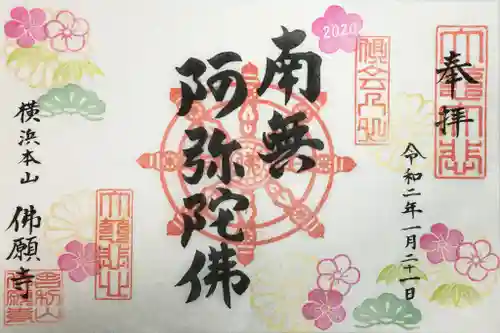 奉拝
令和二年一月二十一日
2020
倶会一処
南無
阿弥陀佛
横浜本山
佛願寺